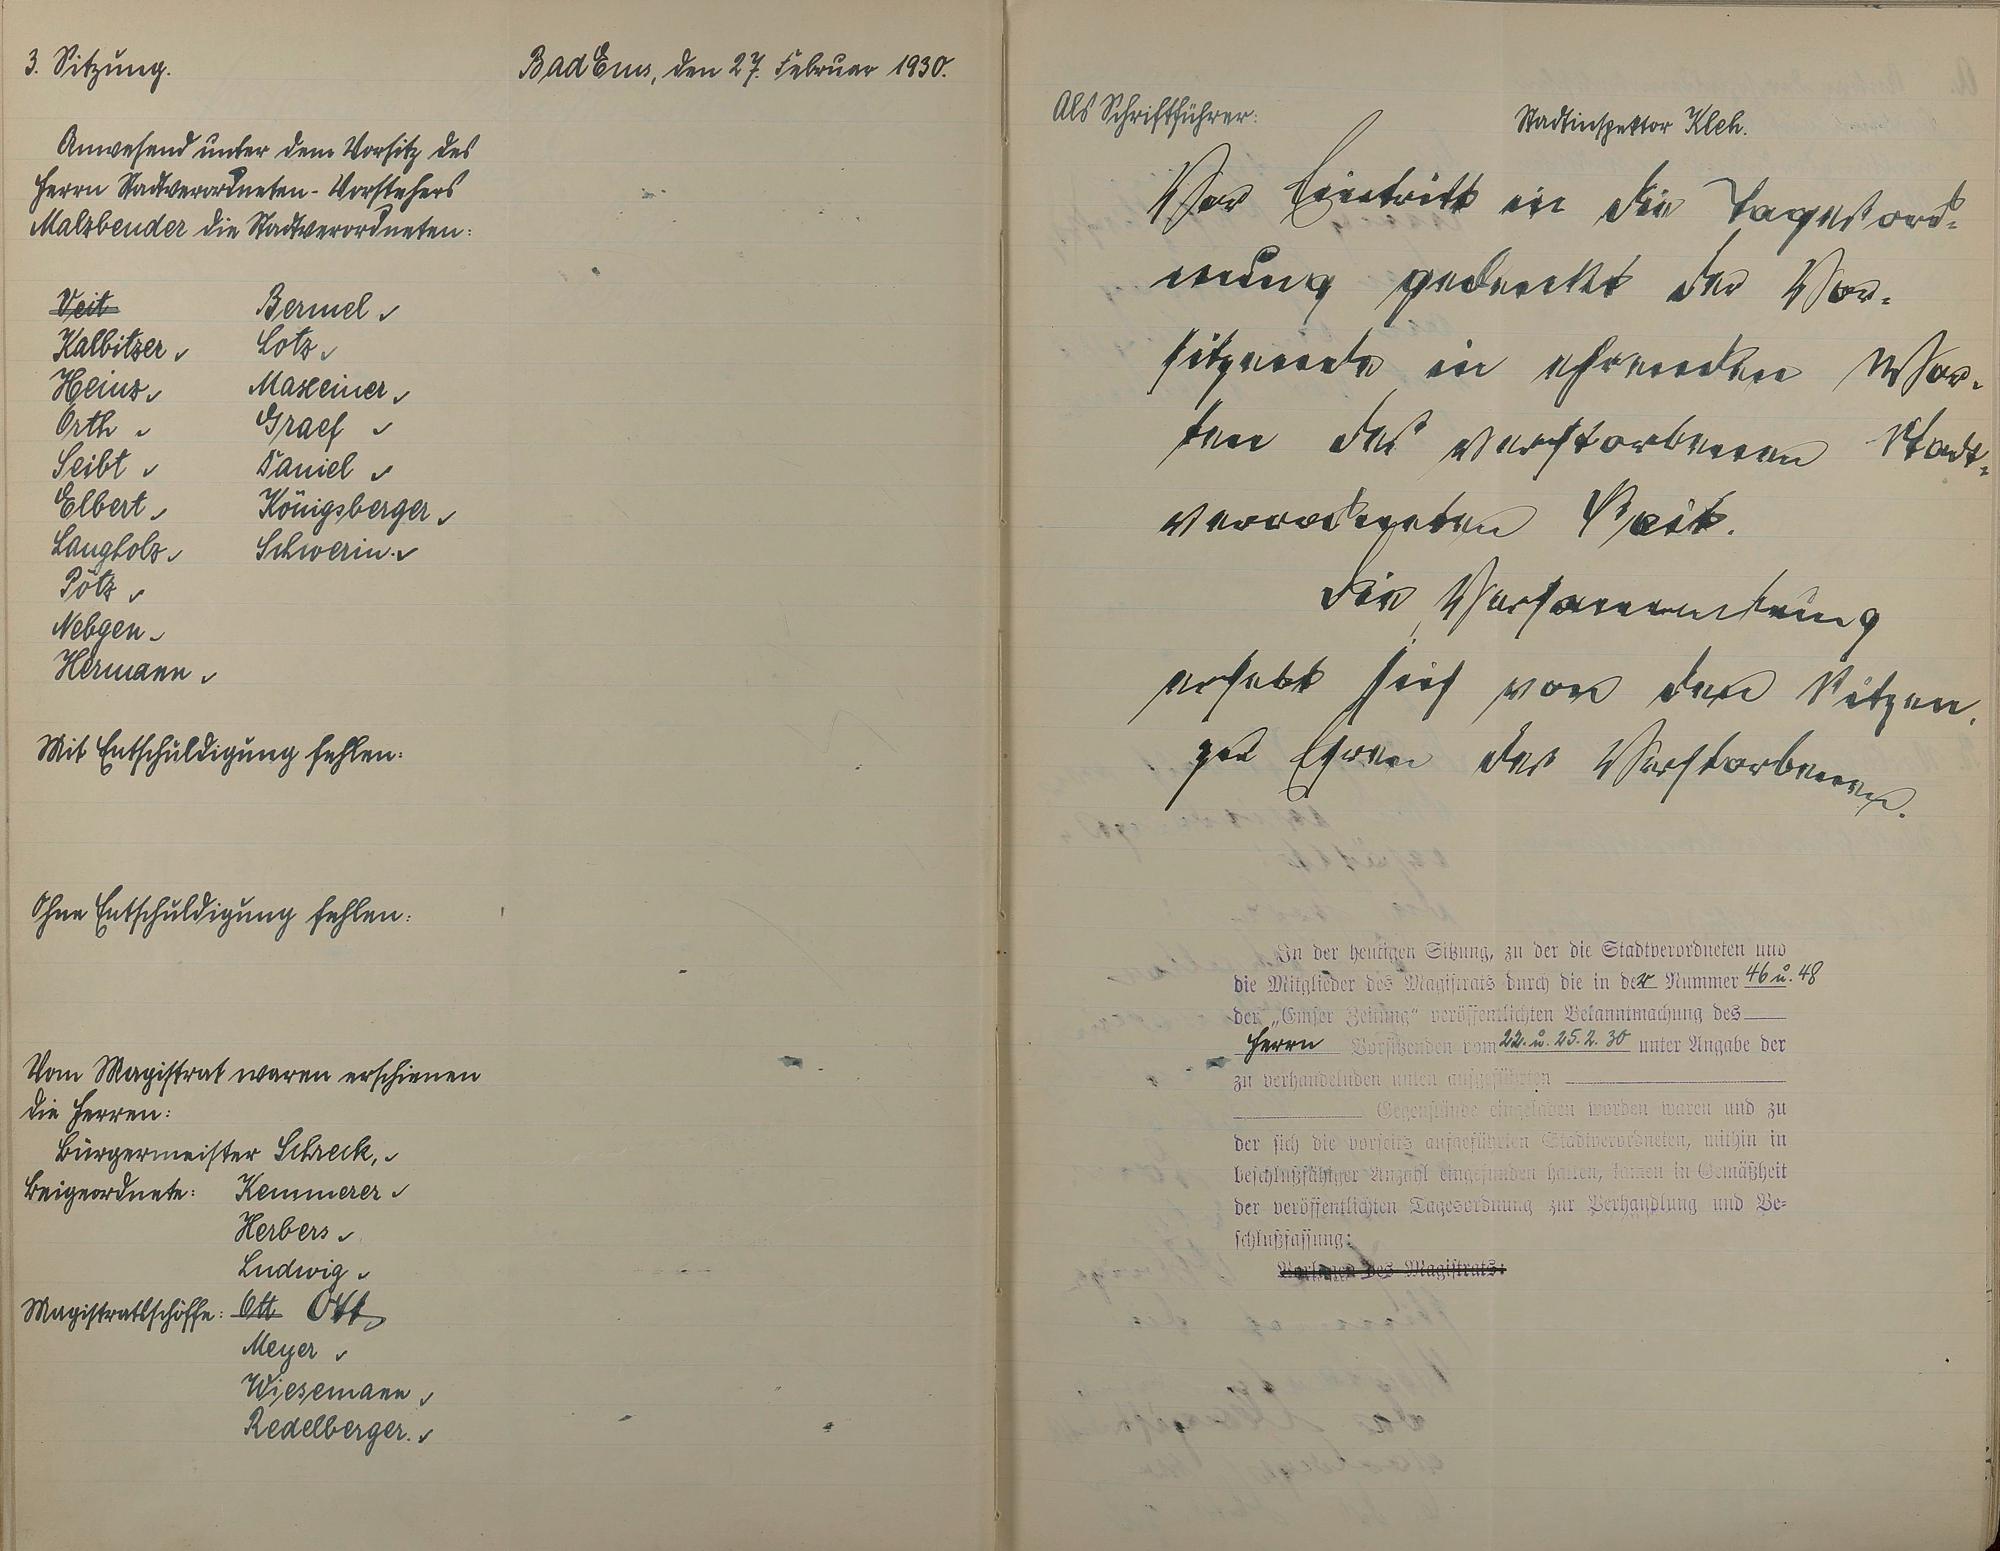 3. Sitzung.
Bad Ems, den 27. Februar 1930.
Anwesend unter dem Vorsitz des
Herrn Stadtverordneten-Vorstehers
Malzbender die Stadtverordneten:
Veit
Kalbitzer
Heinz
Orth
Seibt
Elbert
Langholz
Pötz
Nebgen
Hermann
Bermel
Lotz
Maxeiner
Graef
Daniel
Königsberger
Schwerin.
Mit Entschuldigung fehlen:
Ohne Entschuldigung fehlen:
Vom Magistrat waren erschienen
die Herren:
Bürgermeister Schreck,
Beigeordnete: Kemmerer
Herbers
Ludwig
Magistratsschöffe: Ott Ott
Meyer
Wiesemann
Redelberger.
Als Schriftführer:
Stadtinspektor Kleh.
Vor Eintritt in die Tagesord-
nung gedenkt der Vor-
sitzende in ehrenden Wor-
ten des verstorbenen Stadt-
verordneten Veit.
Die Versammlung
erhebt sich von den Sitzen,
zu Ehren des Verstorbenen.
In der heutigen Sitzung, zu der die Stadtverordneten und
die Mitglieder des Magistrats durch die in der Nummer 46 u. 48
der „Emser Zeitung“ veröffentlichten Bekanntmachung des
Herrn Vorsitzenden vom 22. u. 25. 2. 30 unter Angabe der
zu verhandelnden unten aufgeführten
Gegenstände eingeladen worden waren und zu
der sich die vorseits aufgeführten Stadtverordneten, mithin in
beschlußfähiger Anzahl eingefunden hatten, kamen in Gemäßheit
der veröffentlichten Tagesordnung zur Verhandlung und Be-
schlußfassung:
Vorlagen des Magistrats: